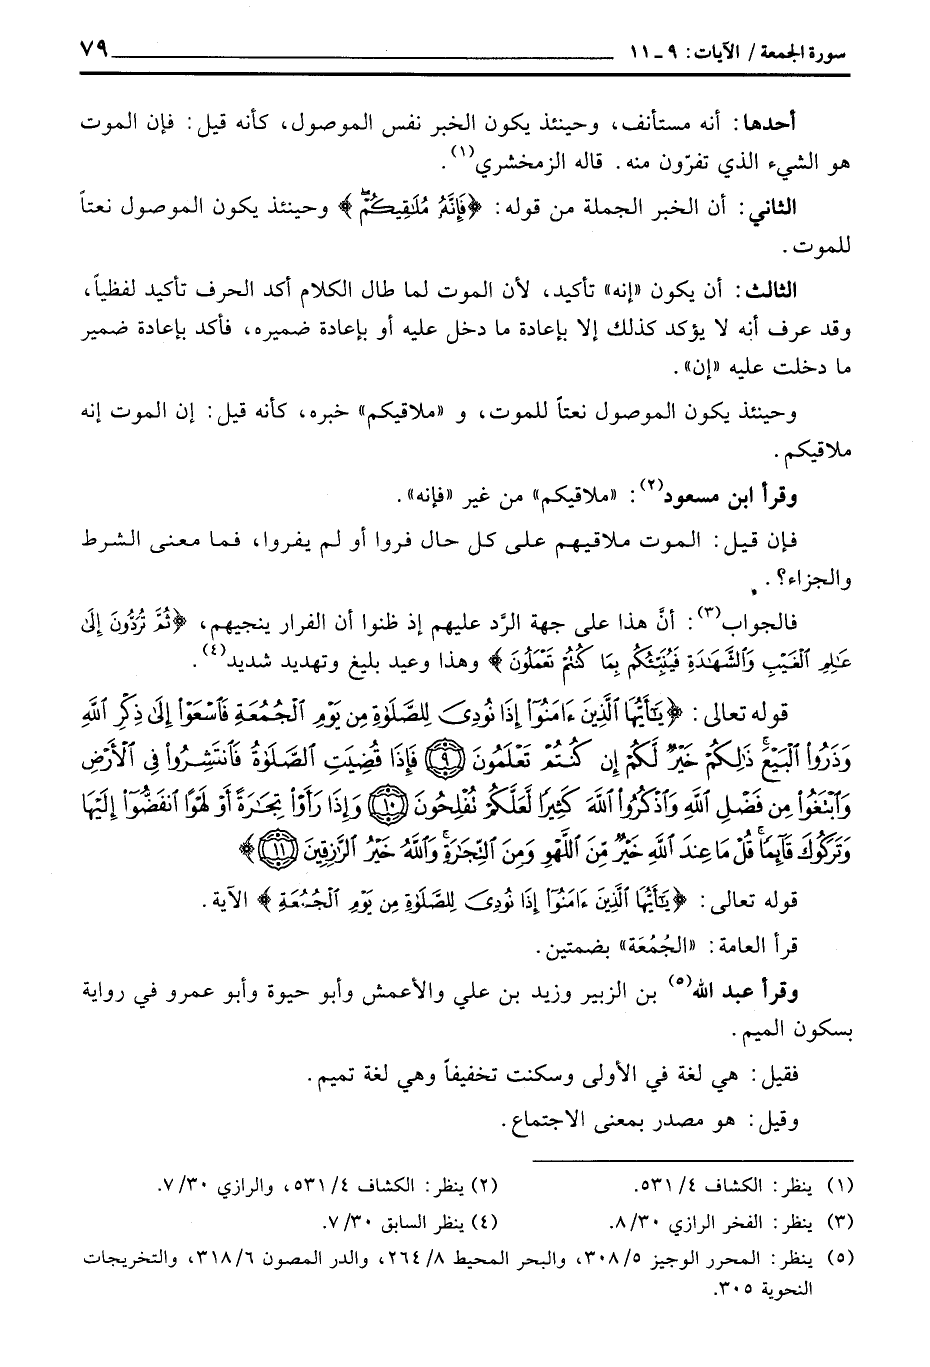 سورة الجمعة / الآيات: ٩ ـ ١١ ٧٩
أحدها: أنه مستأنف، وحينئذ يكون الخبر نفس الموصول، كأنه قيل: فإن الموت
هو الشيء الذي تفرّون منه. قاله الزمخشري(١).
الثاني: أن الخبر الجملة من قوله: ﴿فَإِنَّهُ مُلَٰقِيكُمْۖ﴾ وحينئذ يكون الموصول نعتاً
للموت.
الثالث: أن يكون «إنه» تأكيد، لأن الموت لما طال الكلام أكد الحرف تأكيد لفظياً،
وقد عرف أنه لا يؤكد كذلك إلا بإعادة ما دخل عليه أو بإعادة ضميره، فأكد بإعادة ضمير
ما دخلت عليه «إن».
وحينئذ يكون الموصول نعتاً للموت، و «ملاقيكم» خبره، كأنه قيل: إن الموت إنه
ملاقيكم.
وقرأ ابن مسعود(٢): «ملاقيكم» من غير «فإنه».
فإن قيل: الموت ملاقيهم على كل حال فروا أو لم يفروا، فما معنى الشرط
والجزاء؟.
فالجواب(٣): أنَّ هذا على جهة الرَّد عليهم إذ ظنوا أن الفرار ينجيهم، ﴿ثُمَّ تُرَدُّونَ إِلَىٰ
عَٰلِمِ ٱلْغَيْبِ وَٱلشَّهَٰدَةِ فَيُنَبِّئُكُم بِمَا كُنتُمْ تَعْمَلُونَ﴾ وهذا وعيد بليغ وتهديد شديد(٤).
قوله تعالى: ﴿يَٰٓأَيُّهَا ٱلَّذِينَ ءَامَنُوٓا۟ إِذَا نُودِىَ لِلصَّلَوٰةِ مِن يَوْمِ ٱلْجُمُعَةِ فَٱسْعَوْا۟ إِلَىٰ ذِكْرِ ٱللَّهِ
وَذَرُوا۟ ٱلْبَيْعَۚ ذَٰلِكُمْ خَيْرٌ لَّكُمْ إِن كُنتُمْ تَعْلَمُونَ ٩ فَإِذَا قُضِيَتِ ٱلصَّلَوٰةُ فَٱنتَشِرُوا۟ فِى ٱلْأَرْضِ
وَٱبْتَغُوا۟ مِن فَضْلِ ٱللَّهِ وَٱذْكُرُوا۟ ٱللَّهَ كَثِيرًا لَّعَلَّكُمْ تُفْلِحُونَ ١٠ وَإِذَا رَأَوْا۟ تِجَٰرَةً أَوْ لَهْوًا ٱنفَضُّوٓا۟ إِلَيْهَا
وَتَرَكُوكَ قَآئِمًاۚ قُلْ مَا عِندَ ٱللَّهِ خَيْرٌ مِّنَ ٱللَّهْوِ وَمِنَ ٱلتِّجَٰرَةِۚ وَٱللَّهُ خَيْرُ ٱلرَّٰزِقِينَ ١١﴾
قوله تعالى: ﴿يَٰٓأَيُّهَا ٱلَّذِينَ ءَامَنُوٓا۟ إِذَا نُودِىَ لِلصَّلَوٰةِ مِن يَوْمِ ٱلْجُمُعَةِ﴾ الآية.
قرأ العامة: «الجُمُعَة» بضمتين.
وقرأ عبد الله(٥) بن الزبير وزيد بن علي والأعمش وأبو حيوة وأبو عمرو في رواية
بسكون الميم.
فقيل: هي لغة في الأولى وسكنت تخفيفاً وهي لغة تميم.
وقيل: هو مصدر بمعنى الاجتماع.
(١) ينظر: الكشاف ٤/ ٥٣١. (٢) ينظر: الكشاف ٤/ ٥٣١، والرازي ٣٠/ ٧.
(٣) ينظر: الفخر الرازي ٣٠/ ٨. (٤) ينظر السابق ٣٠/ ٧.
(٥) ينظر: المحرر الوجيز ٥/ ٣٠٨، والبحر المحيط ٨/ ٢٦٤، والدر المصون ٦/ ٣١٨، والتخريجات
النحوية ٣٠٥.